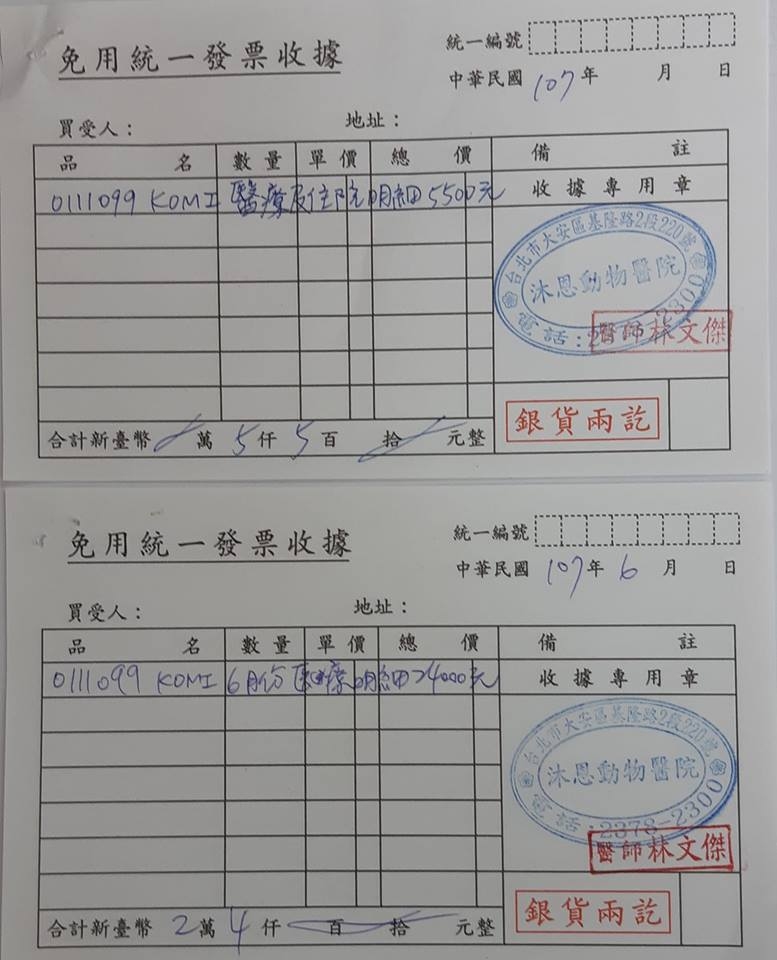 免用統一發票收據
統一編號
中華民國 107 年 月 日
買受人: 地址:
品名 數量 單價 總價 備註
0111099 KOMI 醫療及住院明細 5500元 收據專用章
台北市大安區基隆路2段220號
沐恩動物醫院
電話:2378-2300
醫師林文傑
銀貨兩訖
合計新臺幣 萬 5 仟 5 百 拾 元整
免用統一發票收據
統一編號
中華民國 107 年 6 月 日
買受人: 地址:
品名 數量 單價 總價 備註
0111099 KOMI 6月份醫療明細 24000元 收據專用章
台北市大安區基隆路2段220號
沐恩動物醫院
電話:2378-2300
醫師林文傑
銀貨兩訖
合計新臺幣 2 萬 4 仟 百 拾 元整